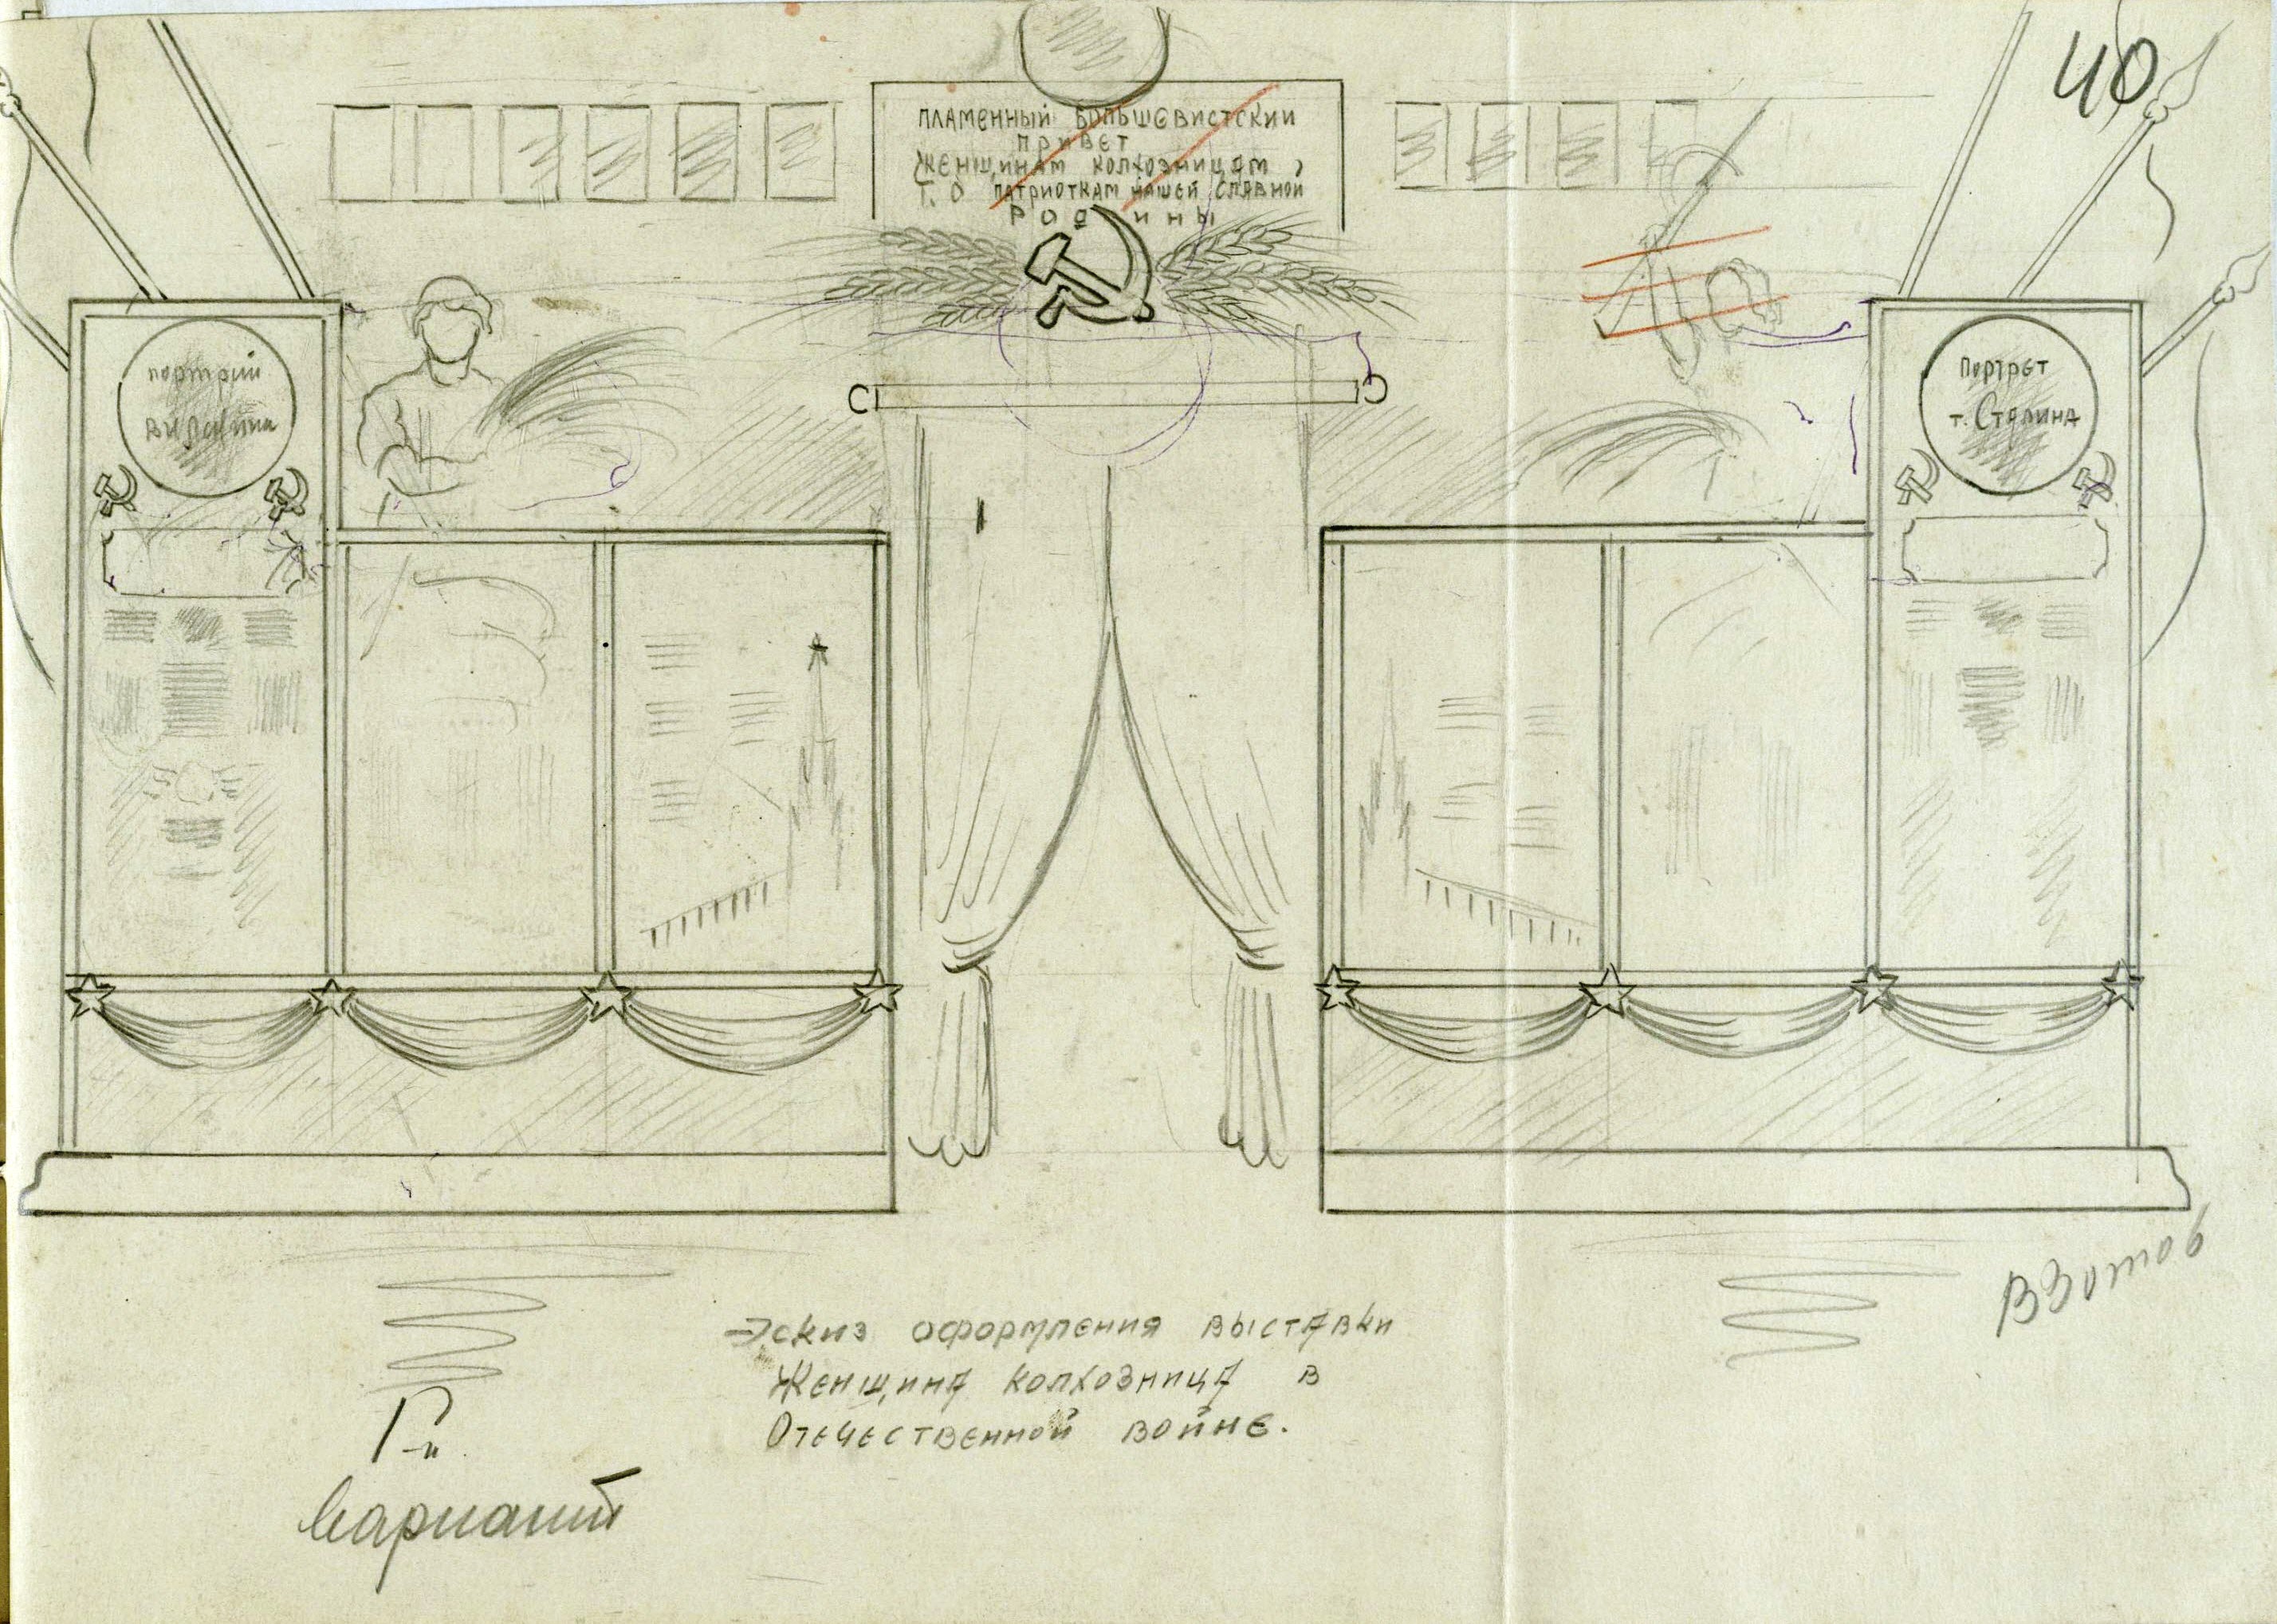 40
ПЛАМЕННЫЙ БОЛЬШЕВИСТСКИЙ
ПРИВЕТ
ЖЕНЩИНАМ КОЛХОЗНИЦАМ,
ПАТРИОТКАМ НАШЕЙ СЛАВНОЙ
РОДИНЫ
портрет
В И Ленина
Портрет
т. Сталина
В Зотов
Эскиз оформления выставки
Женщина колхозница в
Отечественной войне.
I-й
вариант